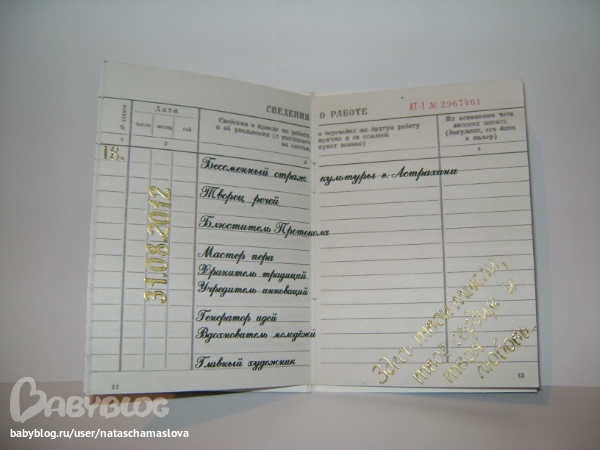 СВЕДЕНИЯ О РАБОТЕ
АТ-I № 2967461
№ записи
Дата
число месяц год
Сведения о приеме на работу,
о переводах на другую работу
и об увольнении (с указанием
причин и со ссылкой
на статью,
пункт закона)
На основании чего
внесена запись
(документ, его дата
и номер)
1
2
3
4
18.
31.08.2012
Бессменный страж культуры г. Астрахани
Творец речей
Блюститель Протокола
Мастер пера
Хранитель традиций
Учредитель инноваций
Генератор идей
Вдохновитель молодёжи
Главный художник
Здесь твои мысли,
твоё сердце и
твоя
любовь...
BABYBLOG
babyblog.ru/user/nataschamaslova